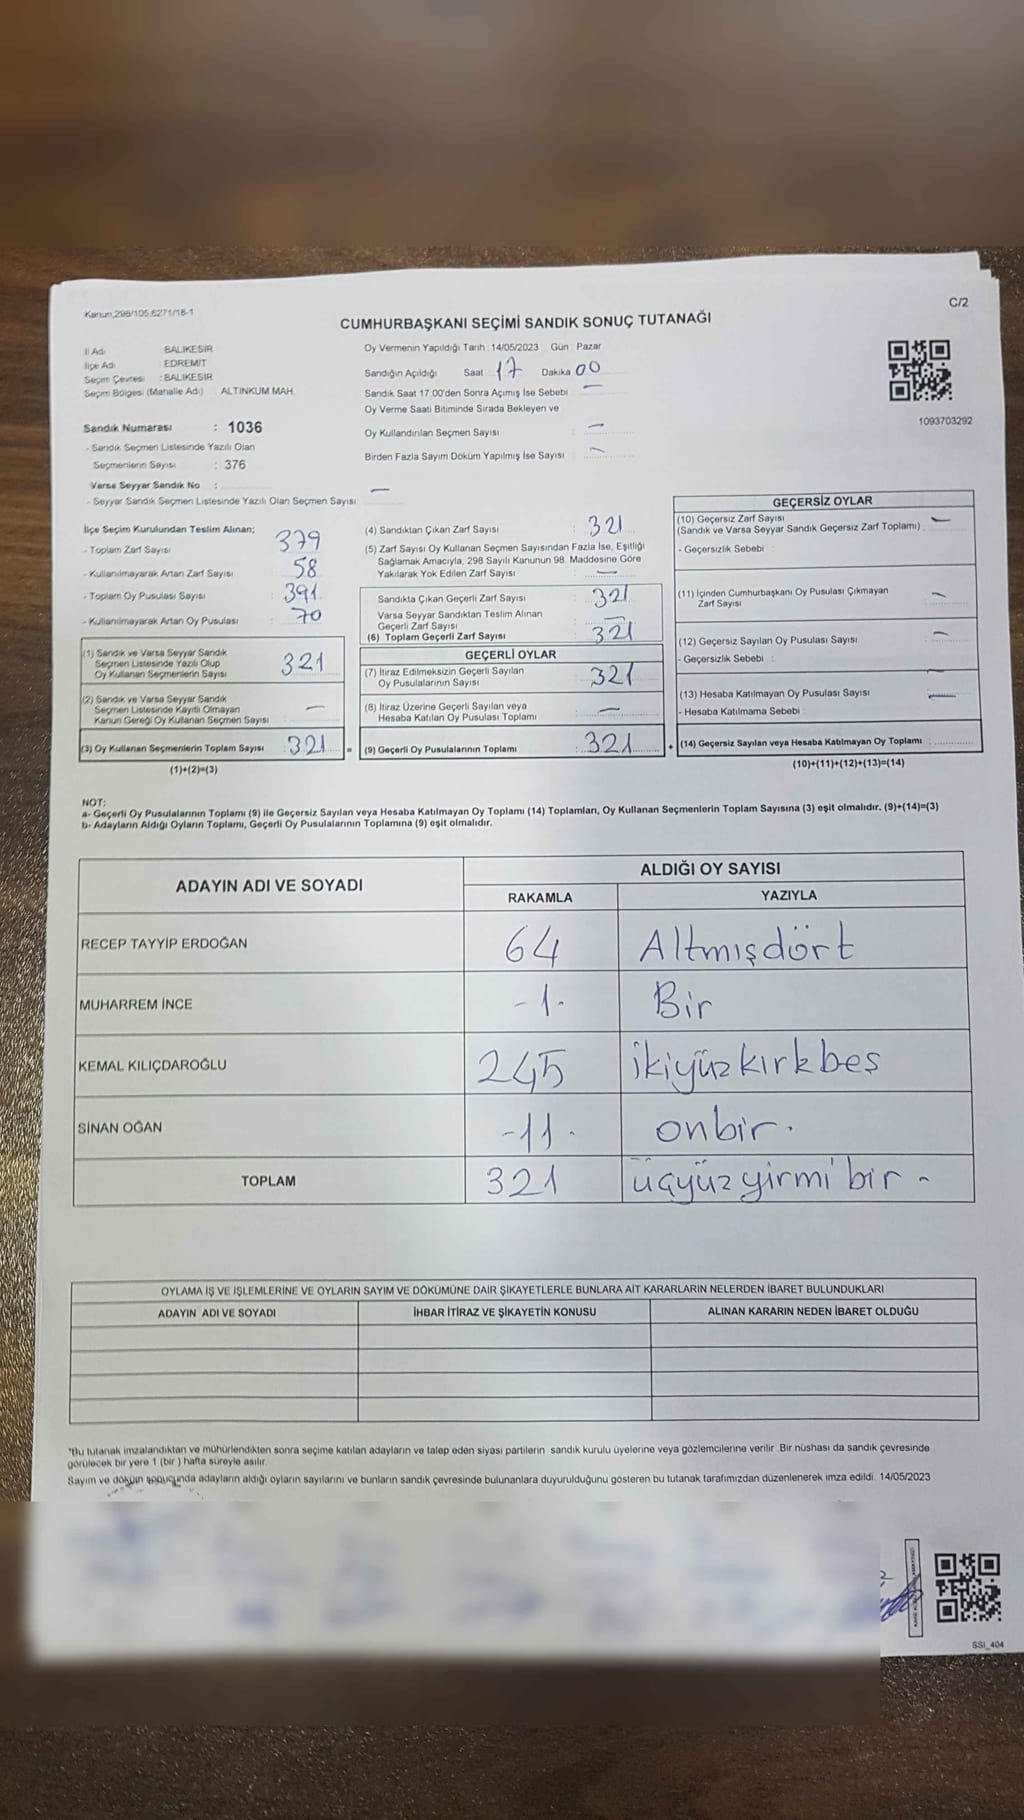 Kanun;298/105;6271/18-1
C/2
CUMHURBAŞKANI SEÇİMİ SANDIK SONUÇ TUTANAĞI
İl Adı : BALIKESİR
İlçe Adı : EDREMİT
Seçim Çevresi : BALIKESİR
Seçim Bölgesi (Mahalle Adı) : ALTINKUM MAH.
Sandık Numarası : 1036
- Sandık Seçmen Listesinde Yazılı Olan
Seçmenlerin Sayısı : 376
Varsa Seyyar Sandık No :
- Seyyar Sandık Seçmen Listesinde Yazılı Olan Seçmen Sayısı —
Oy Vermenin Yapıldığı Tarih : 14/05/2023 Gün : Pazar
Sandığın Açıldığı Saat 17 Dakika 00
Sandık Saat 17.00'den Sonra Açımış İse Sebebi —
Oy Verme Saati Bitiminde Sırada Bekleyen ve
Oy Kullandırılan Seçmen Sayısı : —
Birden Fazla Sayım Döküm Yapılmış İse Sayısı : —
1093703292
İlçe Seçim Kurulundan Teslim Alınan;
- Toplam Zarf Sayısı : 379
- Kullanılmayarak Artan Zarf Sayısı : 58
- Toplam Oy Pusulası Sayısı : 391
- Kullanılmayarak Artan Oy Pusulası : 70
(1) Sandık ve Varsa Seyyar Sandık
Seçmen Listesinde Yazılı Olup
Oy Kullanan Seçmenlerin Sayısı : 321
(2) Sandık ve Varsa Seyyar Sandık
Seçmen Listesinde Kayıtlı Olmayan
Kanun Gereği Oy Kullanan Seçmen Sayısı : —
(3) Oy Kullanan Seçmenlerin Toplam Sayısı : 321 =
(1)+(2)=(3)
(4) Sandıktan Çıkan Zarf Sayısı : 321
(5) Zarf Sayısı Oy Kullanan Seçmen Sayısından Fazla İse, Eşitliği
Sağlamak Amacıyla, 298 Sayılı Kanunun 98. Maddesine Göre
Yakılarak Yok Edilen Zarf Sayısı : —
Sandıkta Çıkan Geçerli Zarf Sayısı : 321
Varsa Seyyar Sandıktan Teslim Alınan
Geçerli Zarf Sayısı : —
(6) Toplam Geçerli Zarf Sayısı : 321
GEÇERLİ OYLAR
(7) İtiraz Edilmeksizin Geçerli Sayılan
Oy Pusulalarının Sayısı : 321
(8) İtiraz Üzerine Geçerli Sayılan veya
Hesaba Katılan Oy Pusulası Toplamı : —
(9) Geçerli Oy Pusulalarının Toplamı : 321 +
GEÇERSİZ OYLAR
(10) Geçersiz Zarf Sayısı : —
(Sandık ve Varsa Seyyar Sandık Geçersiz Zarf Toplamı)
- Geçersizlik Sebebi :
(11) İçinden Cumhurbaşkanı Oy Pusulası Çıkmayan
Zarf Sayısı : —
(12) Geçersiz Sayılan Oy Pusulası Sayısı : —
- Geçersizlik Sebebi :
(13) Hesaba Katılmayan Oy Pusulası Sayısı : —
- Hesaba Katılmama Sebebi :
(14) Geçersiz Sayılan veya Hesaba Katılmayan Oy Toplamı :
(10)+(11)+(12)+(13)=(14)
NOT:
a- Geçerli Oy Pusulalarının Toplamı (9) ile Geçersiz Sayılan veya Hesaba Katılmayan Oy Toplamı (14) Toplamları, Oy Kullanan Seçmenlerin Toplam Sayısına (3) eşit olmalıdır. (9)+(14)=(3)
b- Adayların Aldığı Oyların Toplamı, Geçerli Oy Pusulalarının Toplamına (9) eşit olmalıdır.
ADAYIN ADI VE SOYADI
ALDIĞI OY SAYISI
RAKAMLA YAZIYLA
RECEP TAYYİP ERDOĞAN 64 Altmışdört
MUHARREM İNCE -1. Bir
KEMAL KILIÇDAROĞLU 245 ikiyüzkırkbeş
SİNAN OĞAN -11. onbir.
TOPLAM 321 üçyüzyirmibir -
OYLAMA İŞ VE İŞLEMLERİNE VE OYLARIN SAYIM VE DÖKÜMÜNE DAİR ŞİKAYETLERLE BUNLARA AİT KARARLARIN NELERDEN İBARET BULUNDUKLARI
ADAYIN ADI VE SOYADI İHBAR İTİRAZ VE ŞİKAYETİN KONUSU ALINAN KARARIN NEDEN İBARET OLDUĞU
*Bu tutanak imzalandıktan ve mühürlendikten sonra seçime katılan adayların ve talep eden siyasi partilerin sandık kurulu üyelerine veya gözlemcilerine verilir. Bir nüshası da sandık çevresinde
görülecek bir yere 1 (bir) hafta süreyle asılır.
Sayım ve döküm sonucunda adayların aldığı oyların sayılarını ve bunların sandık çevresinde bulunanlara duyurulduğunu gösteren bu tutanak tarafımızdan düzenlenerek imza edildi. 14/05/2023
SSI_404